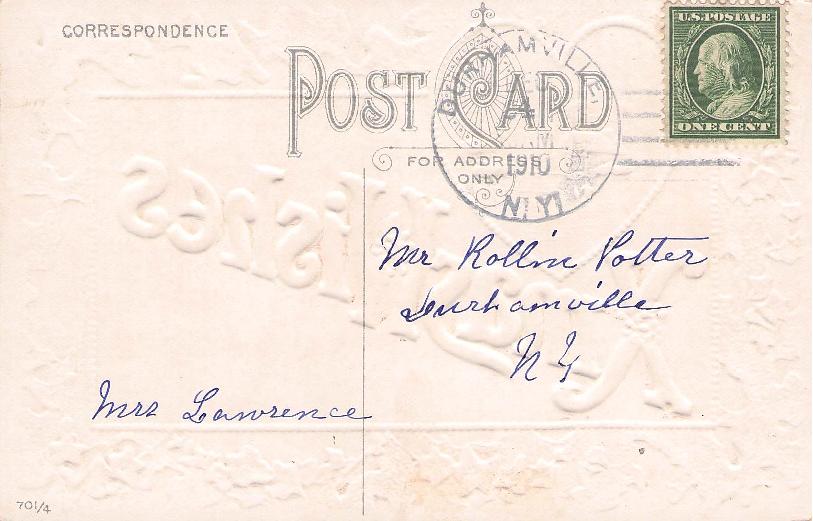 CORRESPONDENCE
POST CARD
FOR ADDRESS
ONLY
DURHAMVILLE,
1910
N.Y.
U.S. POSTAGE
ONE CENT
Mr Rollin Potter
Durhamville
N Y
Mrs Lawrence
701/4